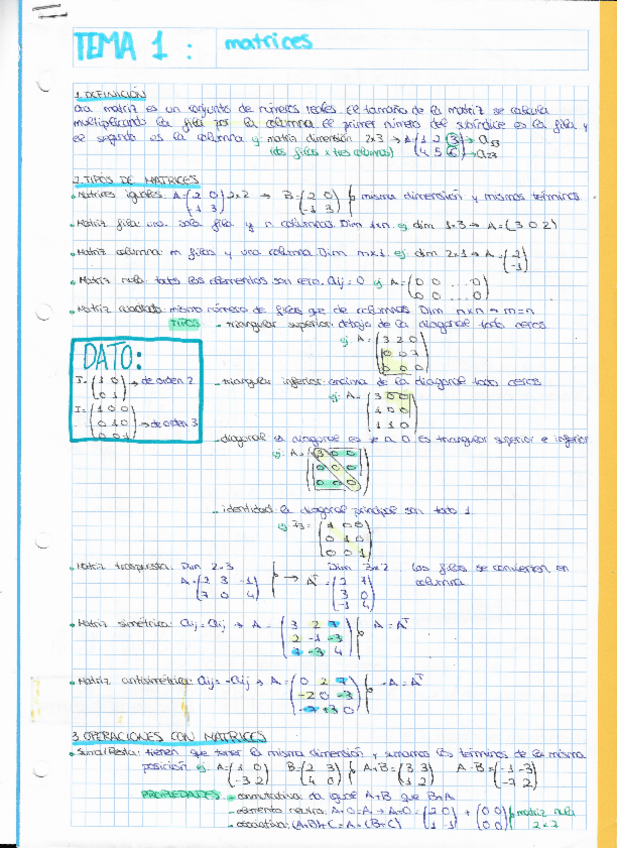 TEMA 1 : matrices
1. DEFINICIÓN
Una matriz es un conjunto de números reales. El tamaño de la matriz se calcula
multiplicando la fila por la columna. El primer número del subíndice es la fila y
el segundo es la columna ej: matriz dimensión 2x3 → A (1 2 3) → a₁₃
(dos filas x tres columnas) (4 5 6) → a₂₃
2. TIPOS DE MATRICES
• Matrices iguales: A=(2 0) 2x2 → B=(2 0) misma dimensión y mismos términos
(-1 3) (-1 3)
• Matriz fila: una sola fila y n columnas. Dim 1xn. ej dim 1x3 → A=(3 0 2)
• Matriz columna: m filas y una columna. Dim mx1. ej: dim 2x1 → A=(2)
(-1)
• Matriz nula: todos los elementos son cero. aij=0 ej A=(0 0 ... 0)
(0 0 ... 0)
• Matriz cuadrada: mismo número de filas que de columnas Dim nxn → m=n
TIPOS - triangular superior: debajo de la diagonal todo ceros
ej A=(3 2 0)
(0 0 7)
(0 0 0)
DATO:
I=(1 0) → de orden 2
(0 1)
I=(1 0 0)
(0 1 0) → de orden 3
(0 0 1)
- triangular inferior: encima de la diagonal todo ceros
ej: A=(3 0 0)
(1 0 0)
(1 1 0)
- diagonal: la diagonal es ≠ 0 es triangular superior e inferior
ej: A=(3 0 0)
(0 0 0)
(0 0 0)
- identidad: la diagonal principal son todo 1
ej I₃=(1 0 0)
(0 1 0)
(0 0 1)
• Matriz traspuesta: Dim 2x3 Dim 3x2. Las filas se convierten en
A=(2 3 -1) → Aᵀ=(2 7) columna
(7 0 4) (3 0)
(-1 4)
• Matriz simétrica: aij=aij → A=(3 2 7) A=Aᵀ
(2 -1 -3)
(7 -3 4)
• Matriz antisimétrica: aij=-aij → A=(0 2 7) -A=Aᵀ
(-2 0 -3)
(-7 +3 0)
3. OPERACIONES CON MATRICES
• Suma/Resta: tienen que tener la misma dimensión y sumamos los términos de la misma
posición ej. A=(1 0) B=(2 3) A+B=(3 3) A-B=(-1 -3)
(-3 2) (4 0) (1 2) (-7 2)
PROPIEDADES - conmutativa: da igual A+B que B+A
- elemento neutro: A+0=A → A+0=(2 0) + (0 0) matriz nula
(1 -1) (0 0) 2x2
- asociativa: (A+B)+C=A+(B+C)